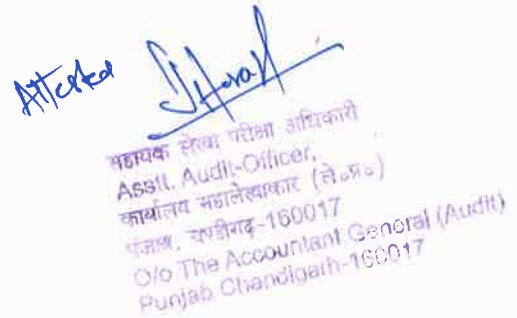 Attested
सहायक लेखा परीक्षा अधिकारी
Asstt. Audit-Officer,
कार्यालय महालेखाकार (ले०प्र०)
पंजाब, चण्डीगढ़-160017
O/o The Accountant General (Audit)
Punjab Chandigarh-160017